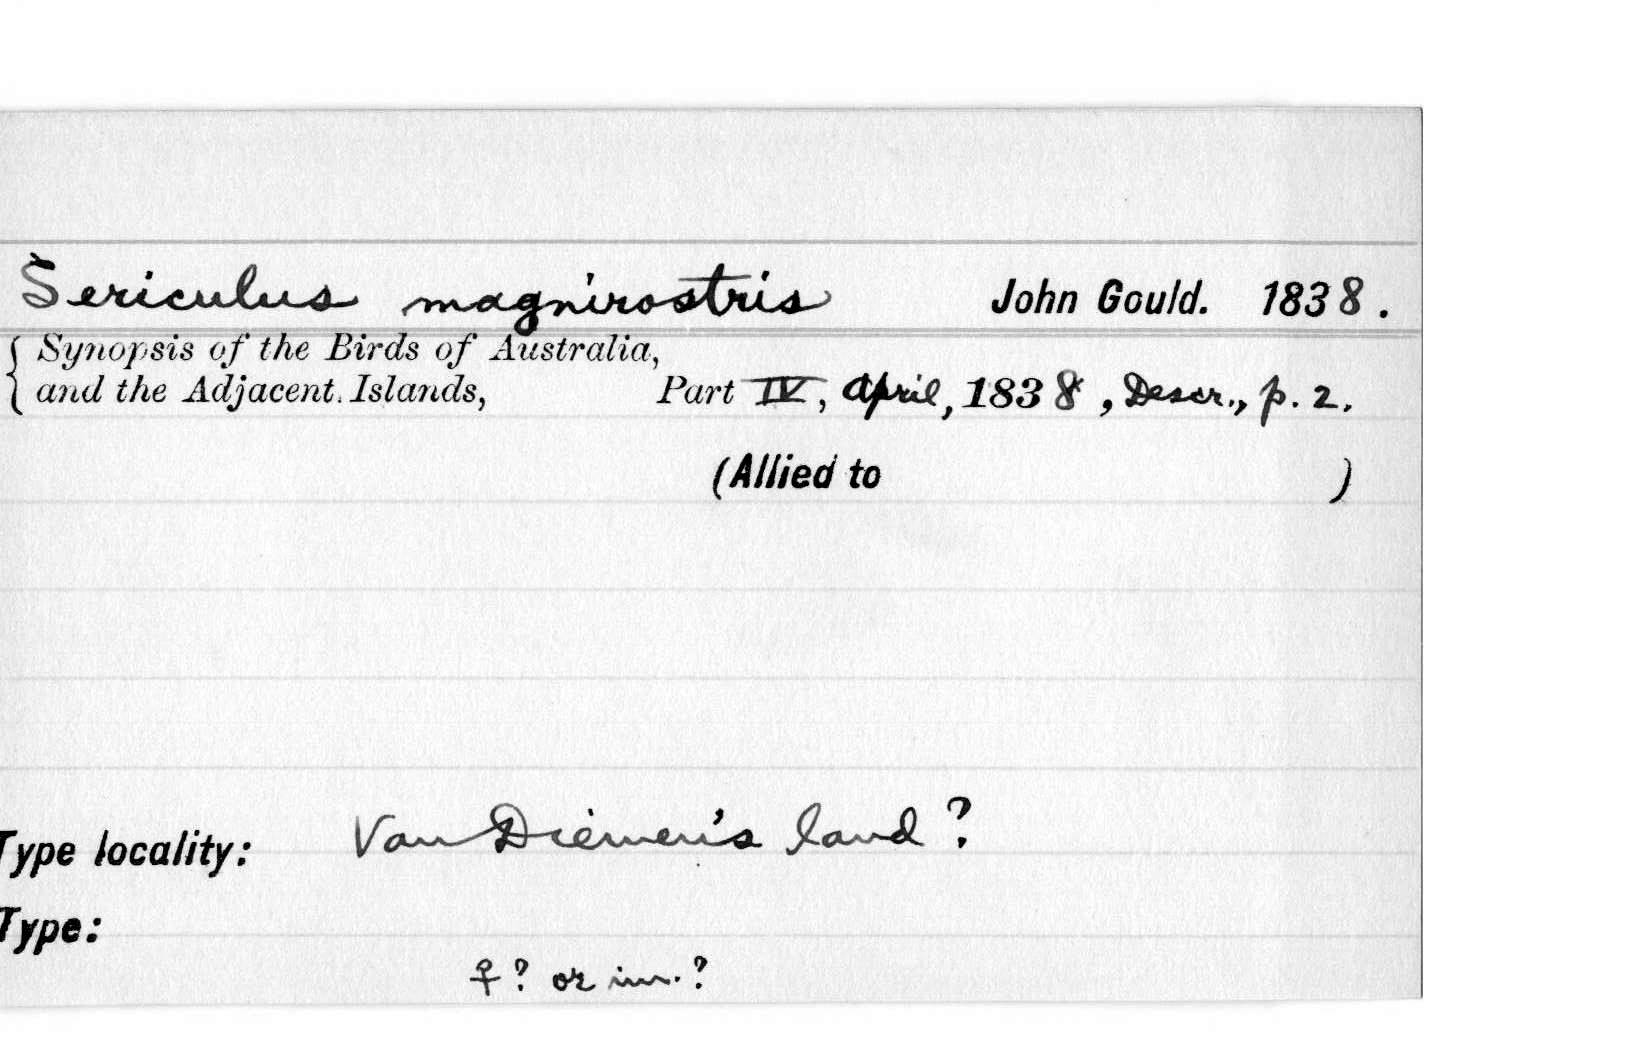 Sericulus magnirostris John Gould. 1838.
{ Synopsis of the Birds of Australia,
and the Adjacent Islands, Part IV, April, 1838, Descr., p. 2.
(Allied to )
Type locality: Van Diemen's land?
Type:
♀? or im.?